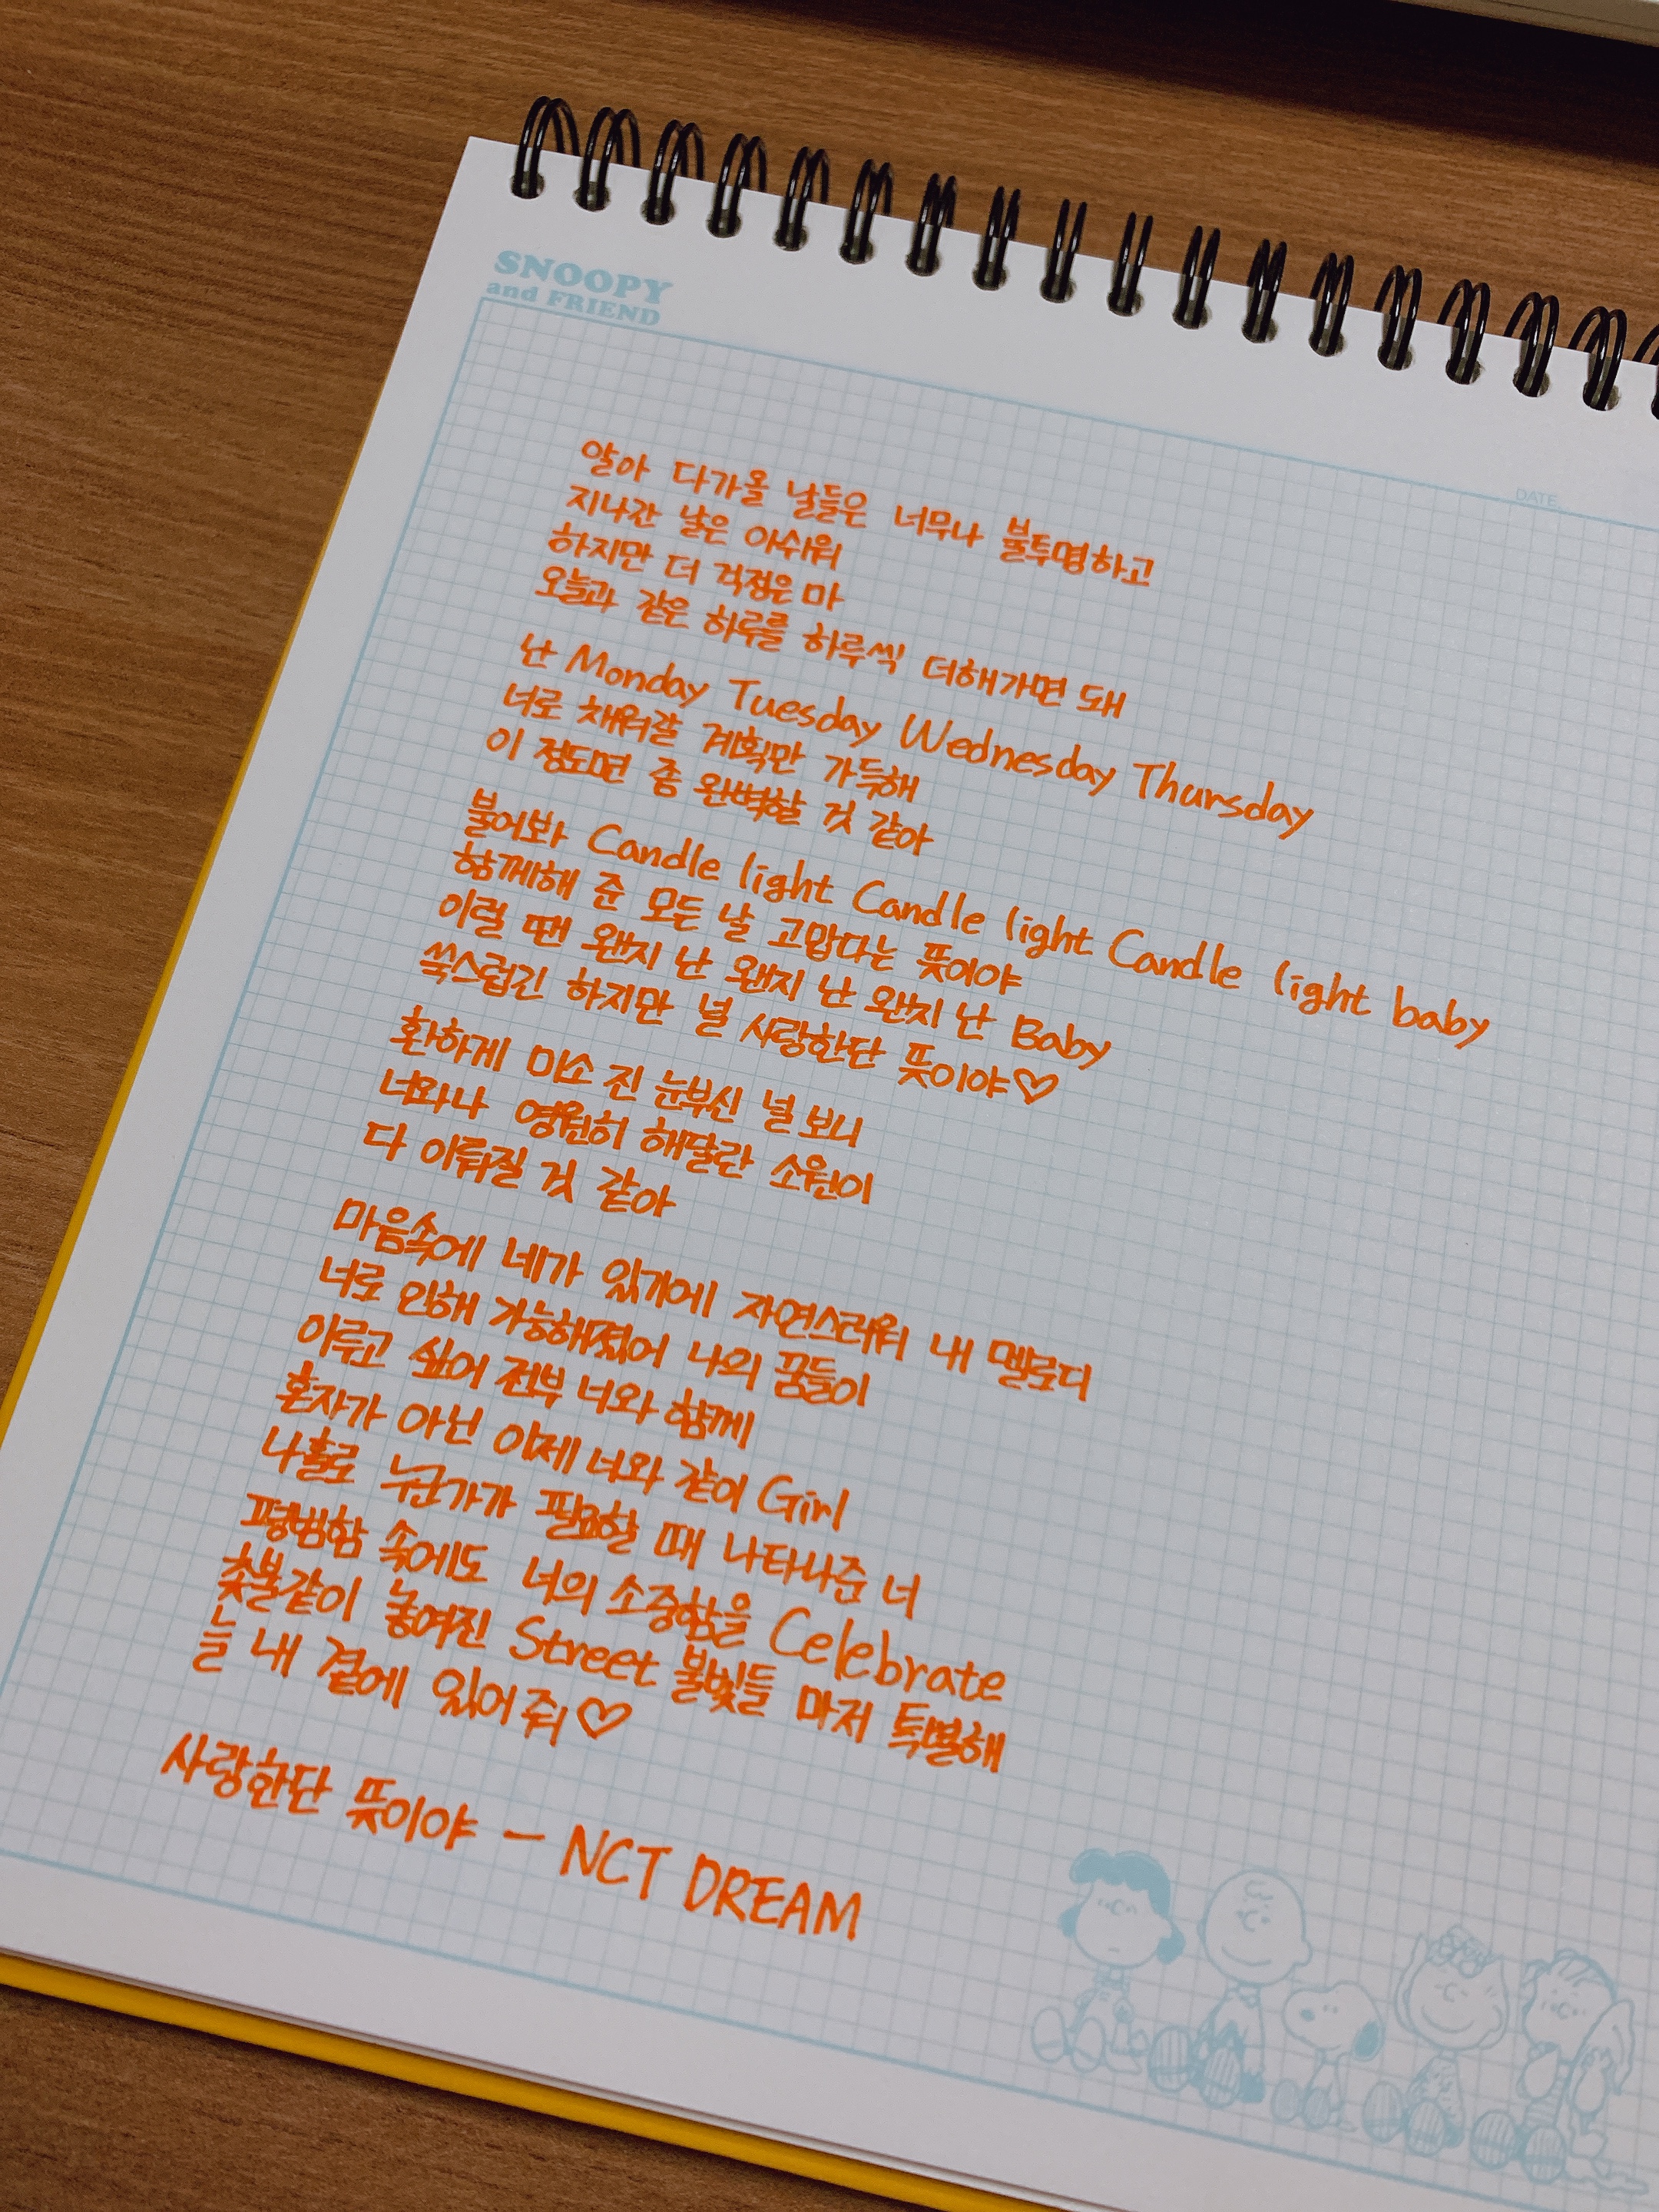 SNOOPY
and FRIEND
DATE.
알아 다가올 날들은 너무나 불투명하고
지나간 날은 아쉬워
하지만 더 걱정은 마
오늘과 같은 하루를 하루씩 더해가면 돼
난 Monday Tuesday Wednesday Thursday
너로 채워갈 계획만 가득해
이 정도면 좀 완벽할 것 같아
불어봐 Candle light Candle light Candle light baby
함께해 준 모든 날 고맙다는 뜻이야
이럴 땐 왠지 난 왠지 난 왠지 난 Baby
쑥스럽긴 하지만 널 사랑한단 뜻이야♡
환하게 미소 진 눈부신 널 보니
너와나 영원히 해달란 소원이
다 이뤄질 것 같아
마음속에 네가 있기에 자연스러워 내 멜로디
너로 인해 가능해졌어 나의 꿈들이
이루고 싶어 전부 너와 함께
혼자가 아닌 이제 너와 같이 Girl
나홀로 누군가가 필요할 때 나타나준 너
평범함 속에도 너의 소중함을 Celebrate
촛불같이 놓여진 Street 불빛들 마저 특별해
늘 내 곁에 있어줘♡
사랑한단 뜻이야 - NCT DREAM